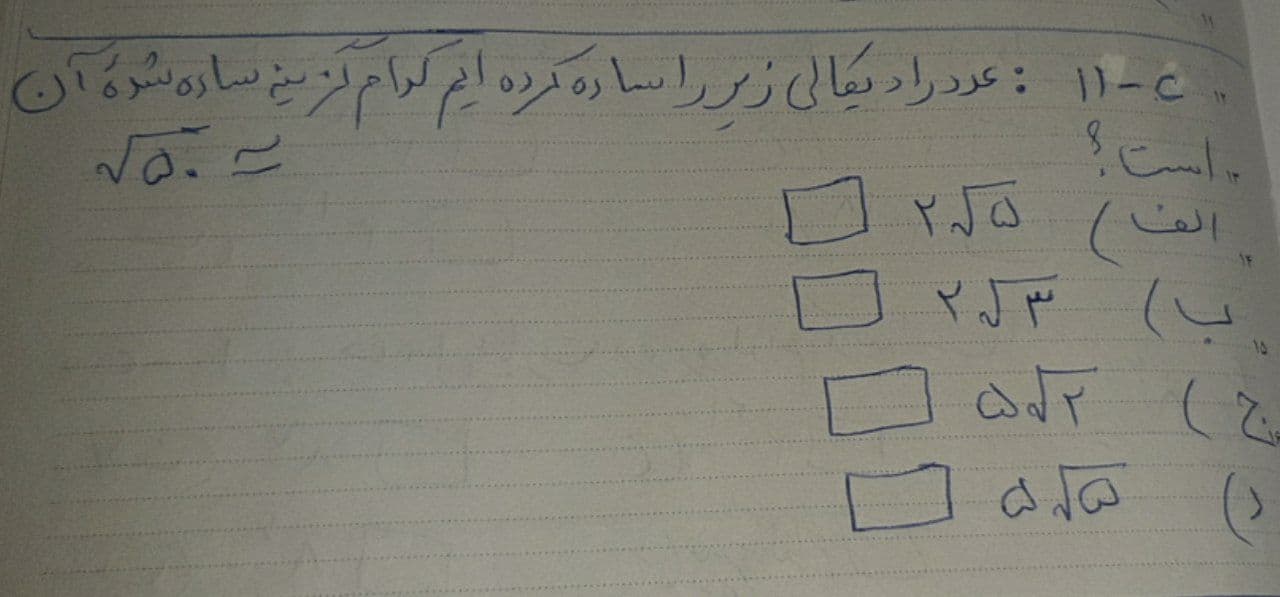 س - ۱۱ : عدد رادیکالی زیر را ساده کرده ایم کدام گزینه ساده شدهٔ آن
است ؟ √۵۰ =
الف ) ۲√۵
ب ) ۲√۳
ج ) ۵√۲
د ) ۵√۵
۱۱
۱۲
۱۳
۱۴
۱۵